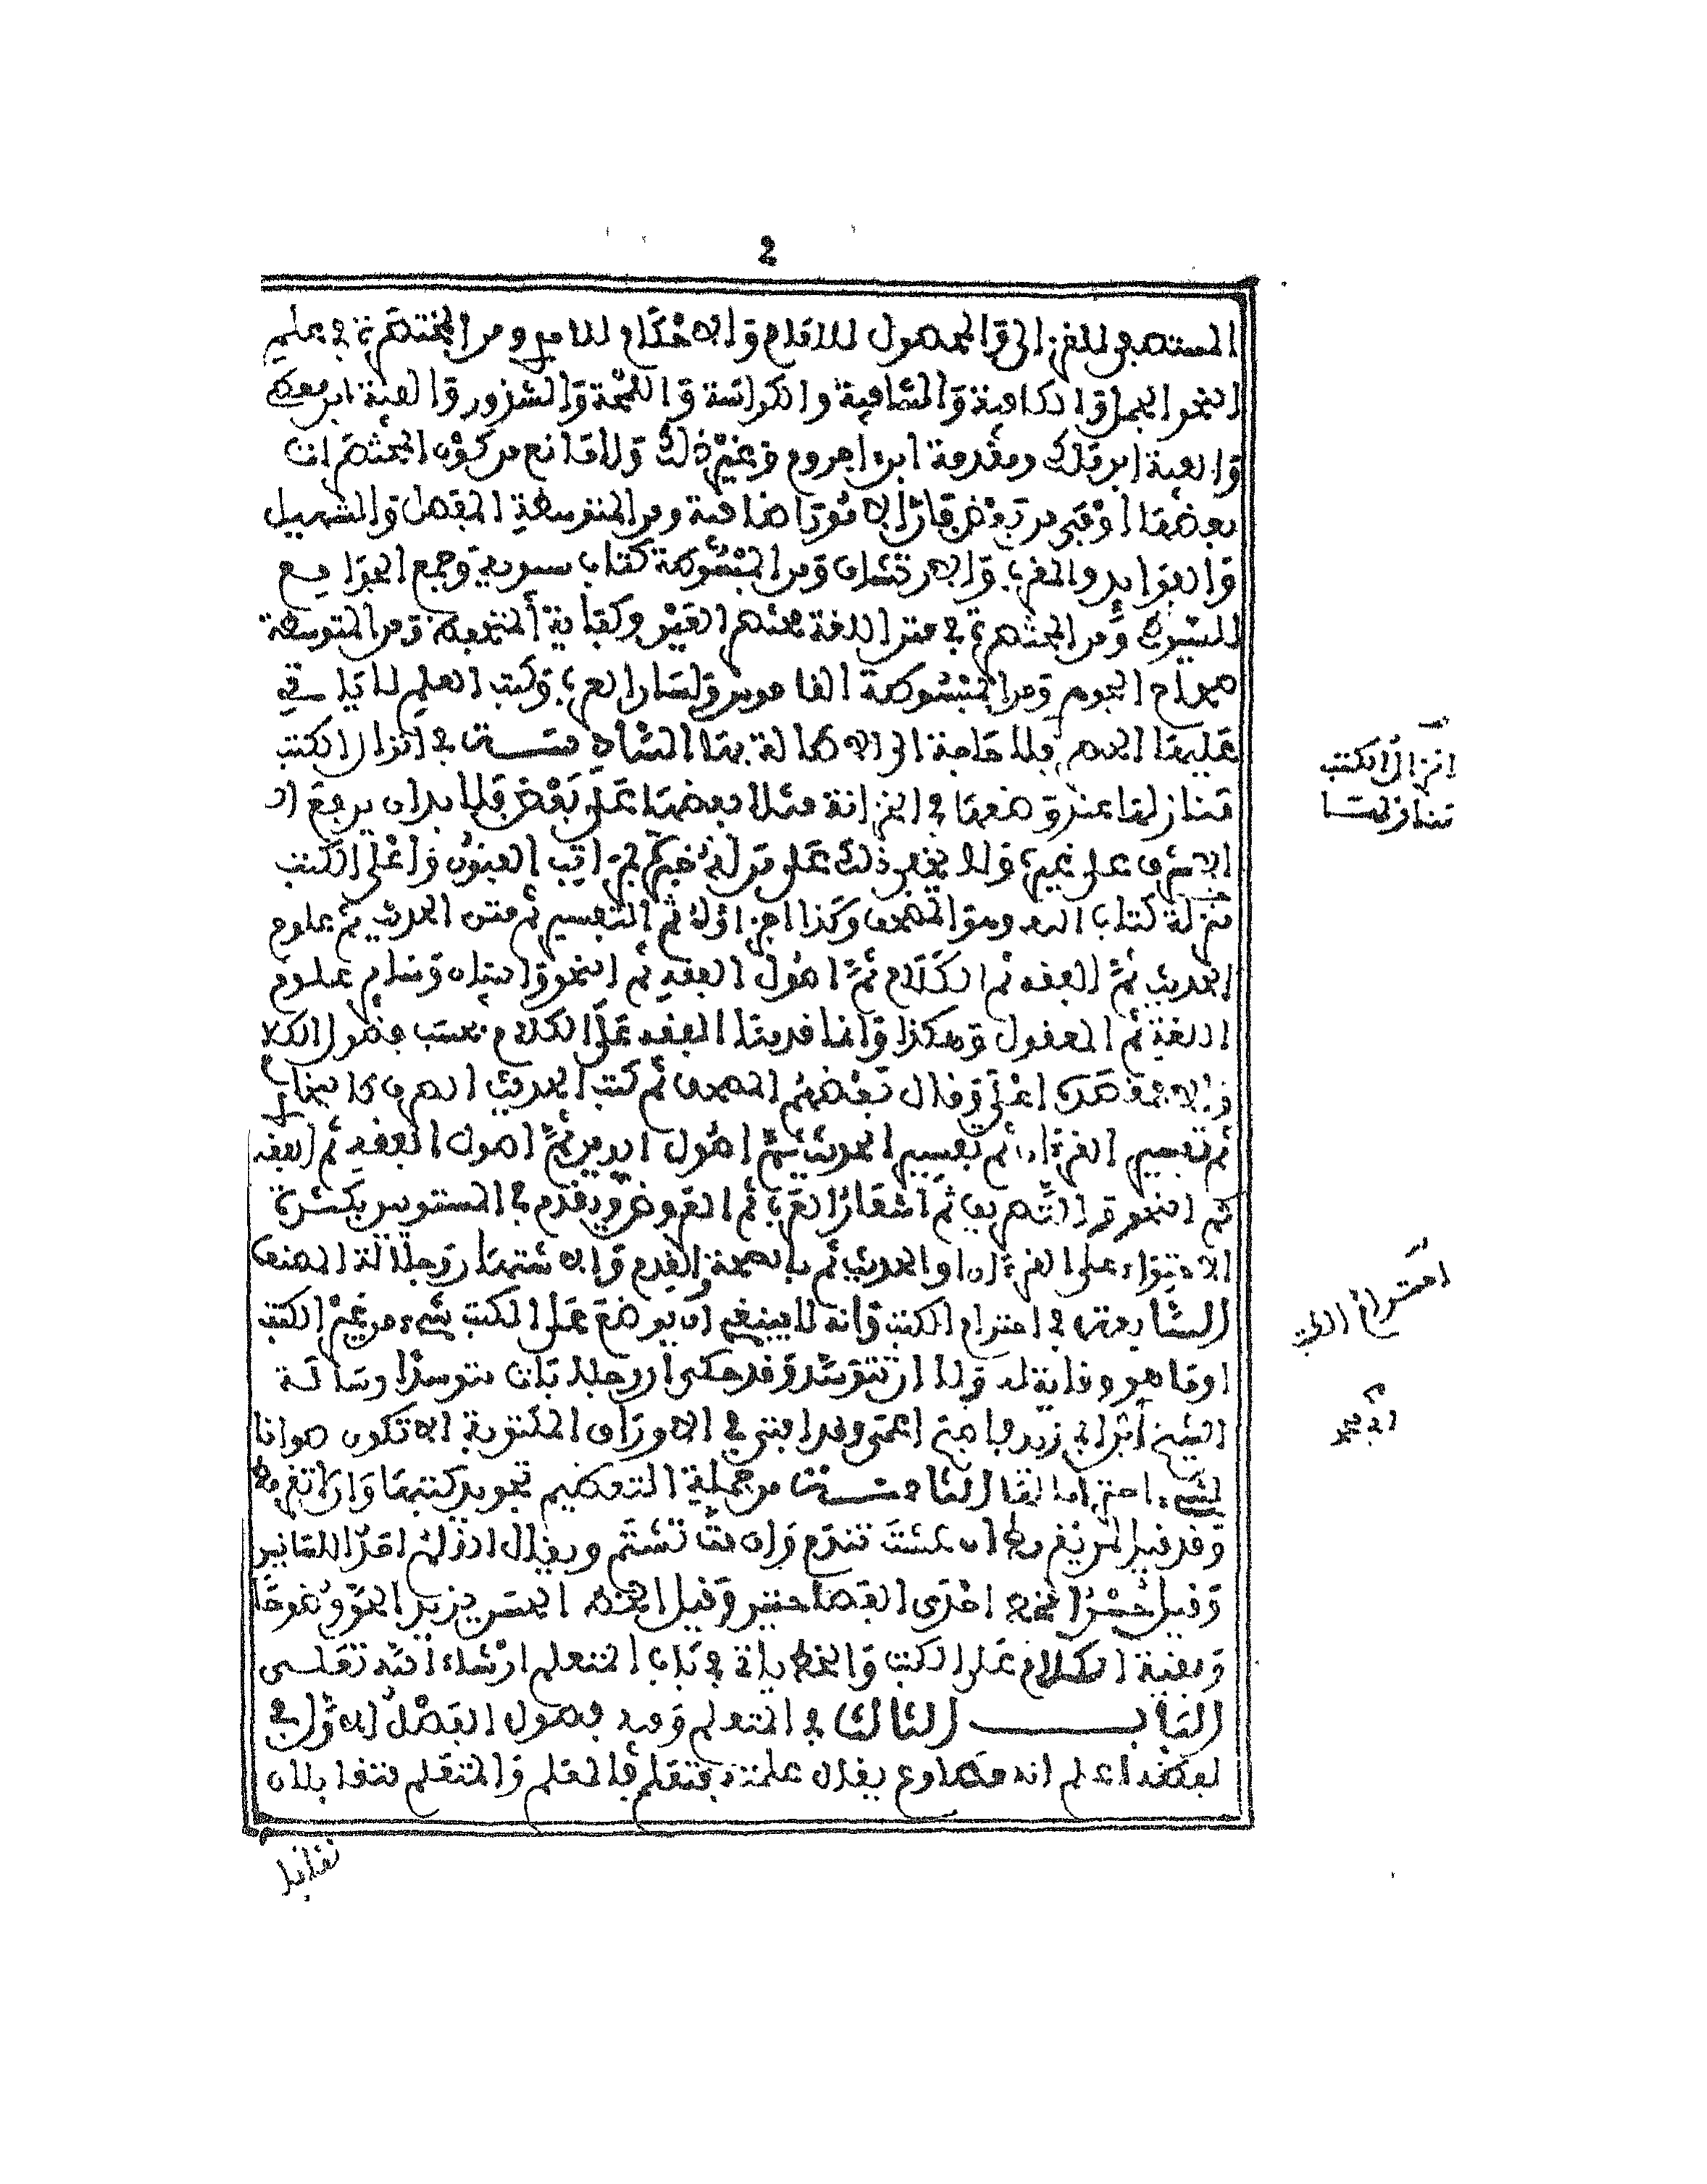 2
المستصفى للغزالي والمحصول للامام والاحكام للامدي ومن المختصرة في علم
النحو الجمل والكافية والشافية والكراسة واللمحة والشذور والفية ابن معط
والفية ابن مالك ومقدمة ابن اجروم وغير ذلك ولا مانع من كون المختصرات
بعضها اوفى من بعض فان الامور اضافية ومن المتوسطة المفصل والتسهيل
والفوايد والمغرب والارتشاف ومن المبسوطة كتاب سيبويه وجمع الجوامع
للسيوطي ومن المختصرة في متن اللغة مختصر العين وكفاية المتحفظ ومن المتوسطة
صحاح الجوهري ومن المبسوطة القاموس ولسان العرب وكتب العلم لا ياتي
عليها الحصر فلا حاجة الى الاطالة بها السادسة في انزال الكتب
منازلها عند وضعها في الخزانة مثلا بعضها على بعض فلا بد ان يرفع
الاشرف على غيره ولا يخفى ذلك على من له خبرة بمراتب الفنون واعلى الكتب
منزلة كتاب الله وهو المصحف وكذا اجزاؤه ثم التفسير ثم متن الحديث ثم علوم
الحديث ثم الفقه ثم الكلام ثم اصول الفقه ثم النحو والبيان وسائر علوم
اللغة ثم المعقول وهكذا وانما قدمنا الفقه على الكلام بحسب فضول الكلام
اعلى وقال بعضهم المصحف ثم كتب الحديث الصرف كالبخاري
ثم تفسير القرءان ثم تفسير الحديث ثم اصول الدين ثم اصول الفقه ثم الفقه
ثم النحو والتصريف ثم اشعار العرب ثم العروض ويقدم في المستويين بكثرة
الاحتواء على القرءان او الحديث ثم بالصحة والقدم والاشتهار وجلالة المصنف
السابعة في احترام الكتب وانه لا ينبغي ان يوضع على الكتب شيء من غير الكتب
او ما هو وقاية له ولا ان تتوسد وقد حكي ان رجلا بات متوسدا رسالة
الشيخ ابن ابي زيد فاصبح اعمى وقد افتي في الاوراق المكتوبة الا تكون صوانا
لشيء احتراما لها الثامنة من جملة التعظيم تجويد كتبها وان لا تقرمط
وقد قيل لا تقرمط ان عشت تندم وان مت تشتم ويقال القلم احد اللسانين
وقيل حسن الخط احدى الفصاحتين وقيل الخط الحسن يزيد الحق وضوحا
وبقية الكلام على الكتب والخط ياتي في باب المتعلم ان شاء الله تعالى
الباب الثالث في المتعلم وفيه فصول الفصل الاول في
لفظه اعلم انه مطاوع يقال علمته فتعلم فالمعلم والمتعلم متقابلان
تقابل
انزال الكتب
منازلها
احترام الكتب